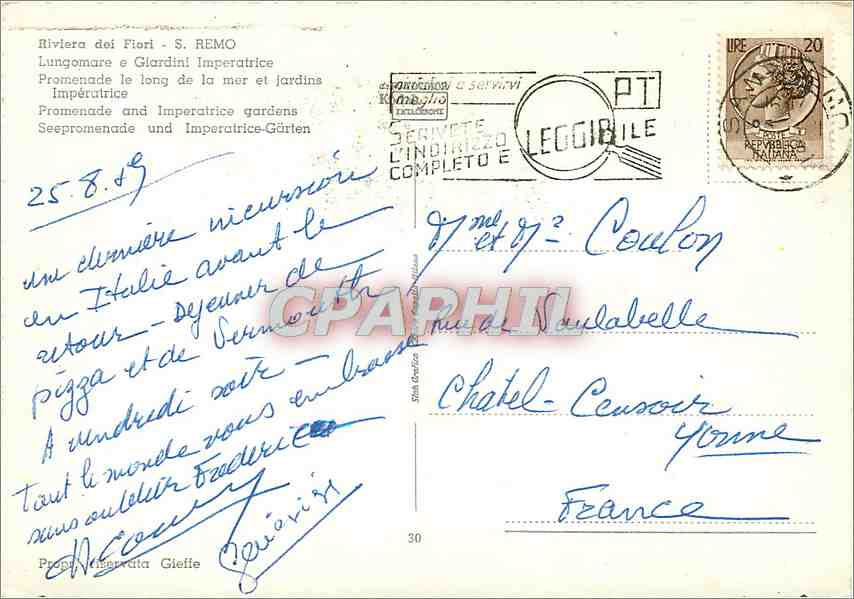 Riviera dei Fiori - S. REMO
Lungomare e Giardini Imperatrice
Promenade le long de la mer et jardins
Impératrice
Promenade and Imperatrice gardens
Seepromenade und Imperatrice-Gärten
a servirvi
PT
SCRIVETE
L'INDIRIZZO
COMPLETO E LEGGIBILE
LIRE 20
POSTE
REPVBBLICA
ITALIANA
25.8.59
une dernière incursion
en Italie avant le
retour - Déjeuner de
pizza et de Vermouth
A vendredi soir -
Tout le monde vous embrasse
sans oublier Frédéric
Mme et Mr Coulon
Rue de Vaulabelle
Chatel-Censoir
Yonne
France
CPAPHIL
30
Propr. riservata Gieffe